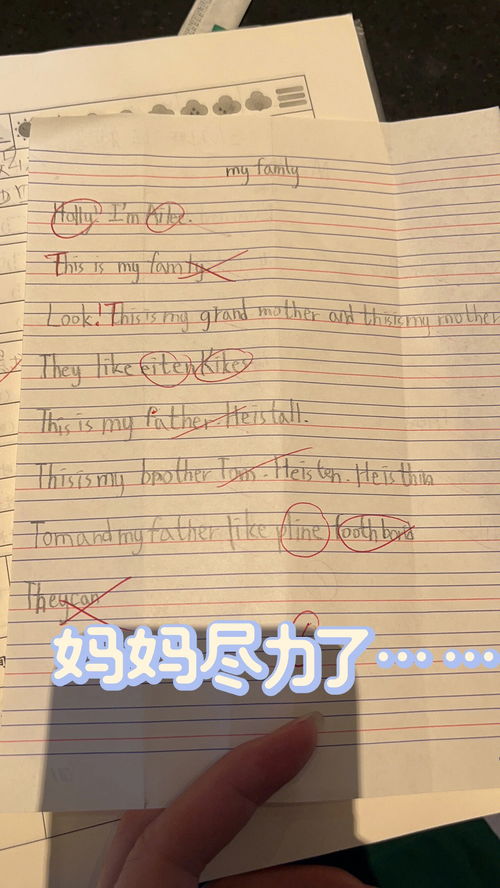 my famly
Holly! I'm Kiler.
This is my famly
Look! This is my grand mother and this is my mother
They like eiten Kikes
This is my father. He is tall.
This is my brother Tom. He is ten. He is thin
Tom and my father like pline foothborts
They can
妈妈尽力了… …